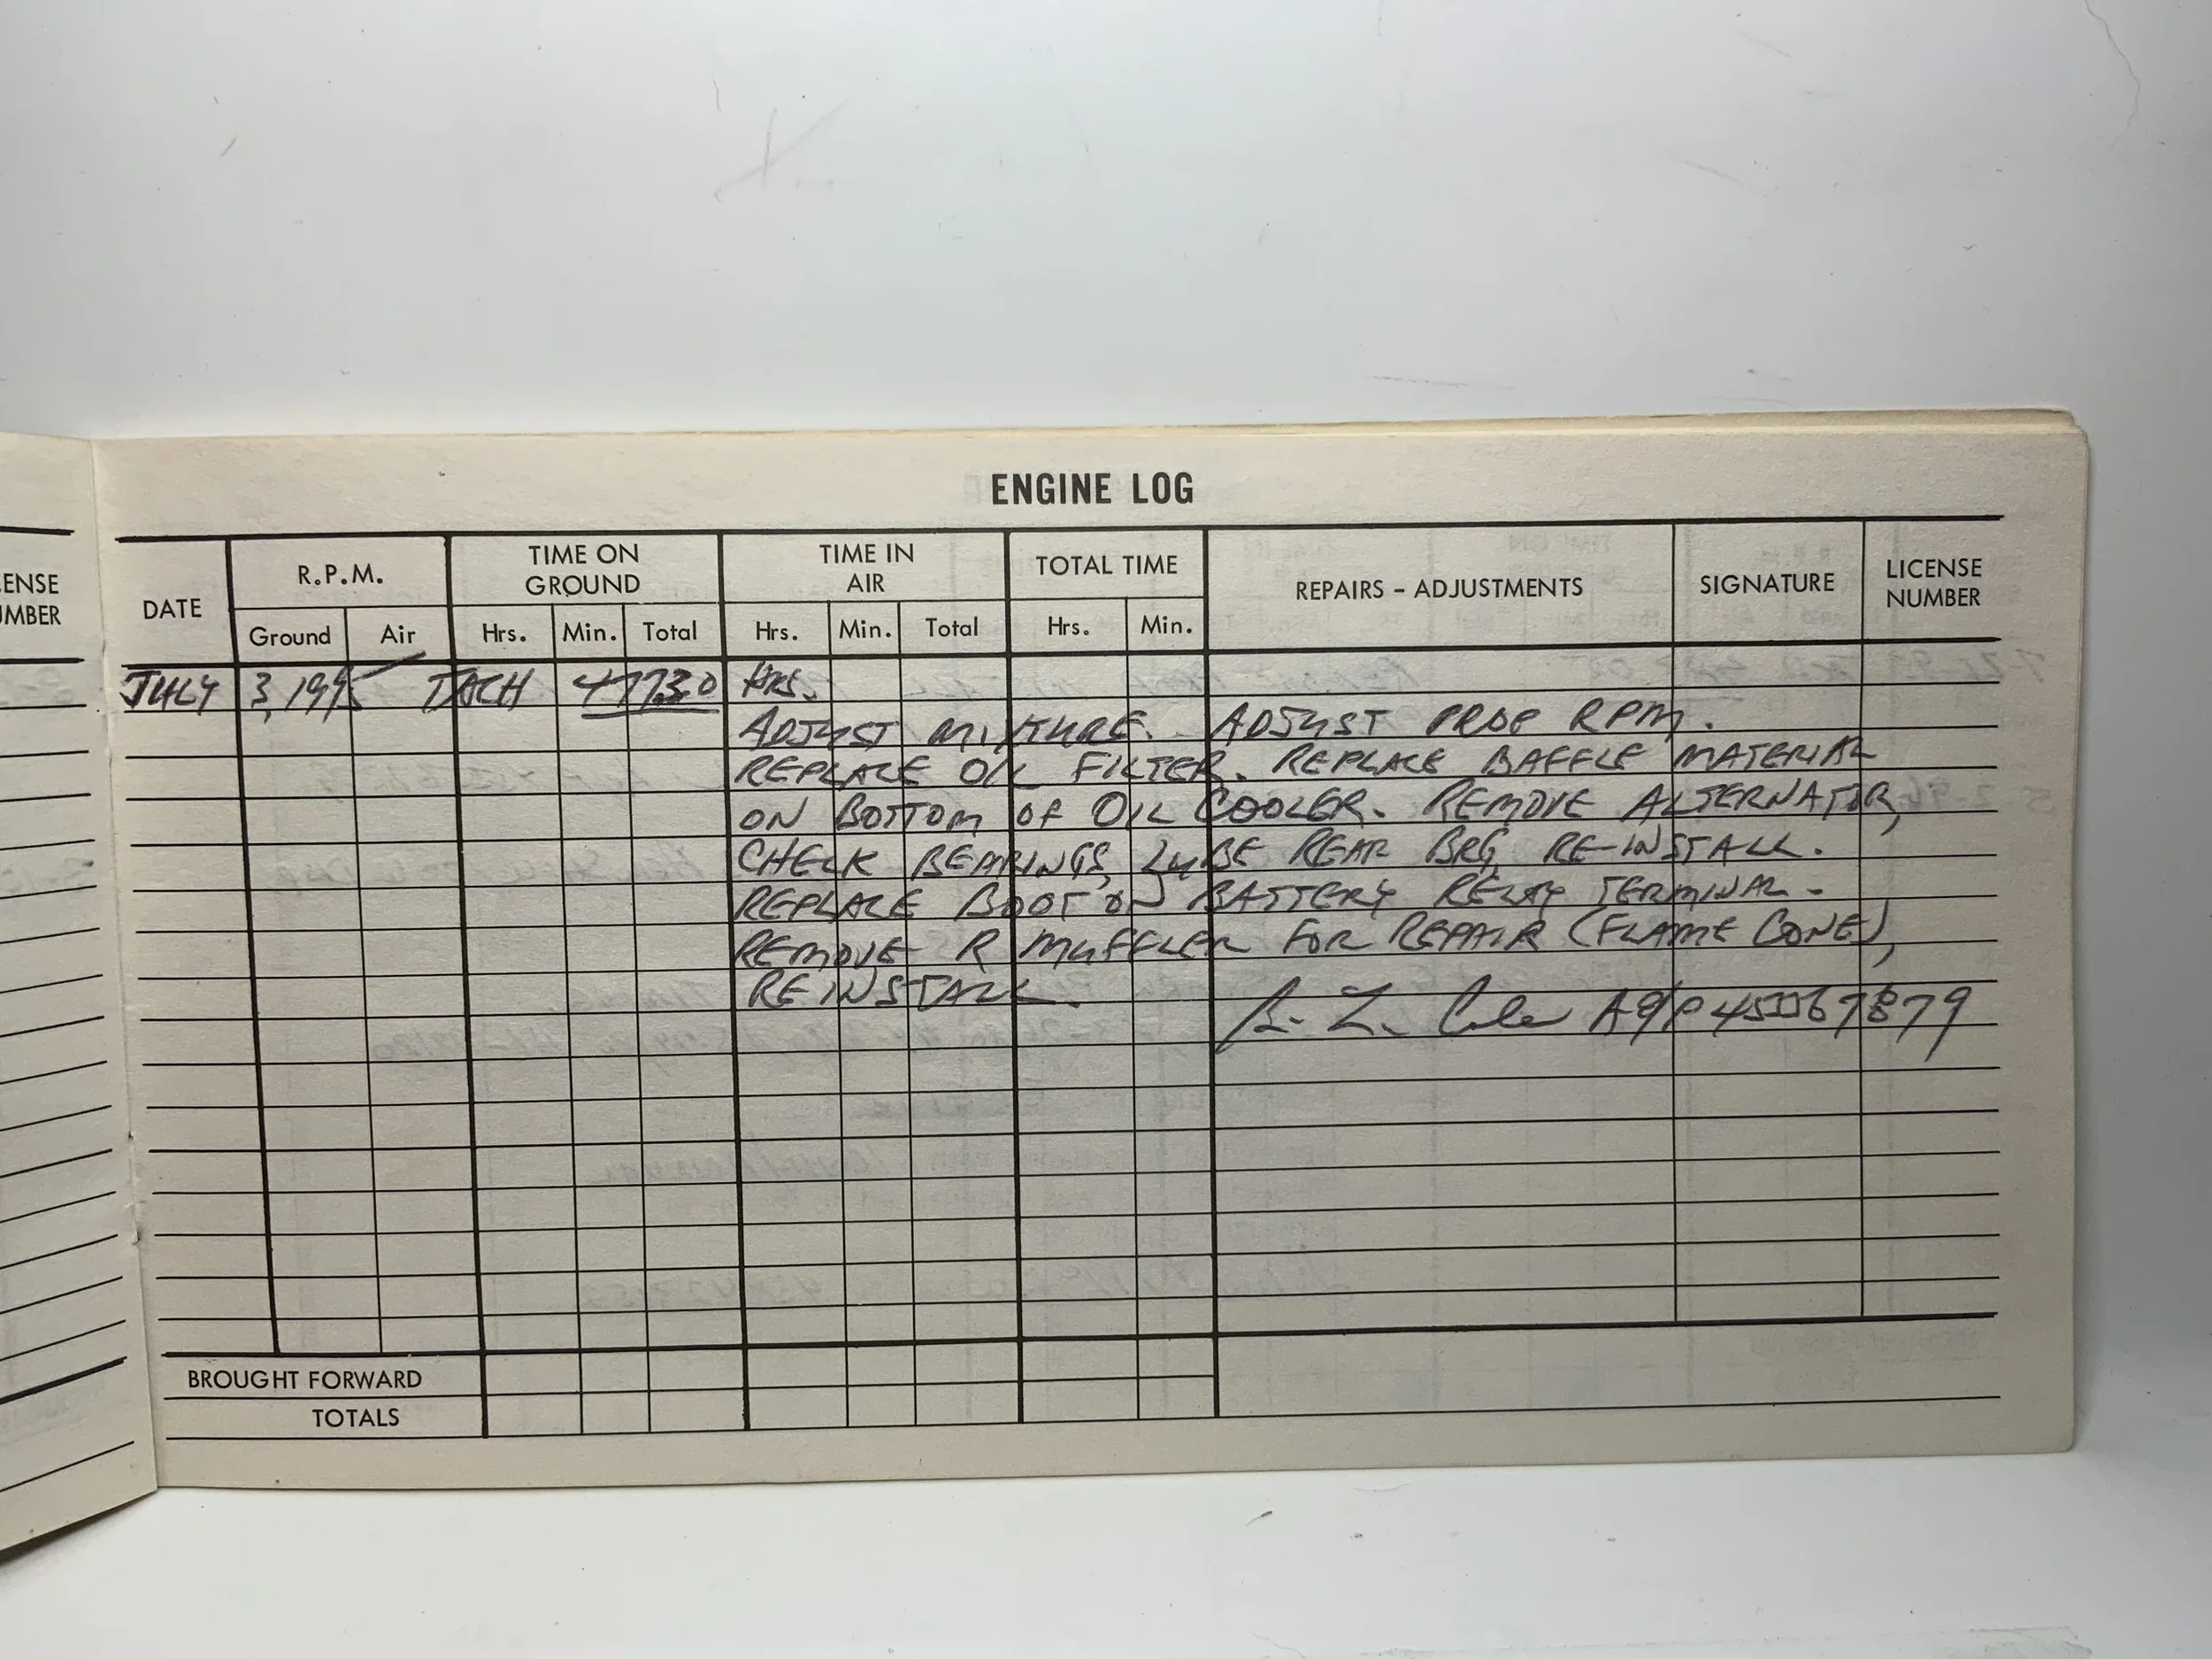 ENGINE LOG
ENSE
UMBER
DATE
R.P.M.
TIME ON GROUND
TIME IN AIR
TOTAL TIME
REPAIRS – ADJUSTMENTS
SIGNATURE
LICENSE NUMBER
Ground Air Hrs. Min. Total Hrs. Min. Total Hrs. Min.
JULY 3, 1995 TACH 4773.0 HRS.
ADJUST MIXTURE. ADJUST PROP RPM.
REPLACE OIL FILTER. REPLACE BAFFLE MATERIAL
ON BOTTOM OF OIL COOLER. REMOVE ALTERNATOR,
CHECK BEARINGS, LUBE REAR BRG, RE-INSTALL.
REPLACE BOOT ON BATTERY RELAY TERMINAL.
REMOVE R MUFFLER FOR REPAIR (FLAME CONE),
REINSTALL.
A&P
BROUGHT FORWARD
TOTALS